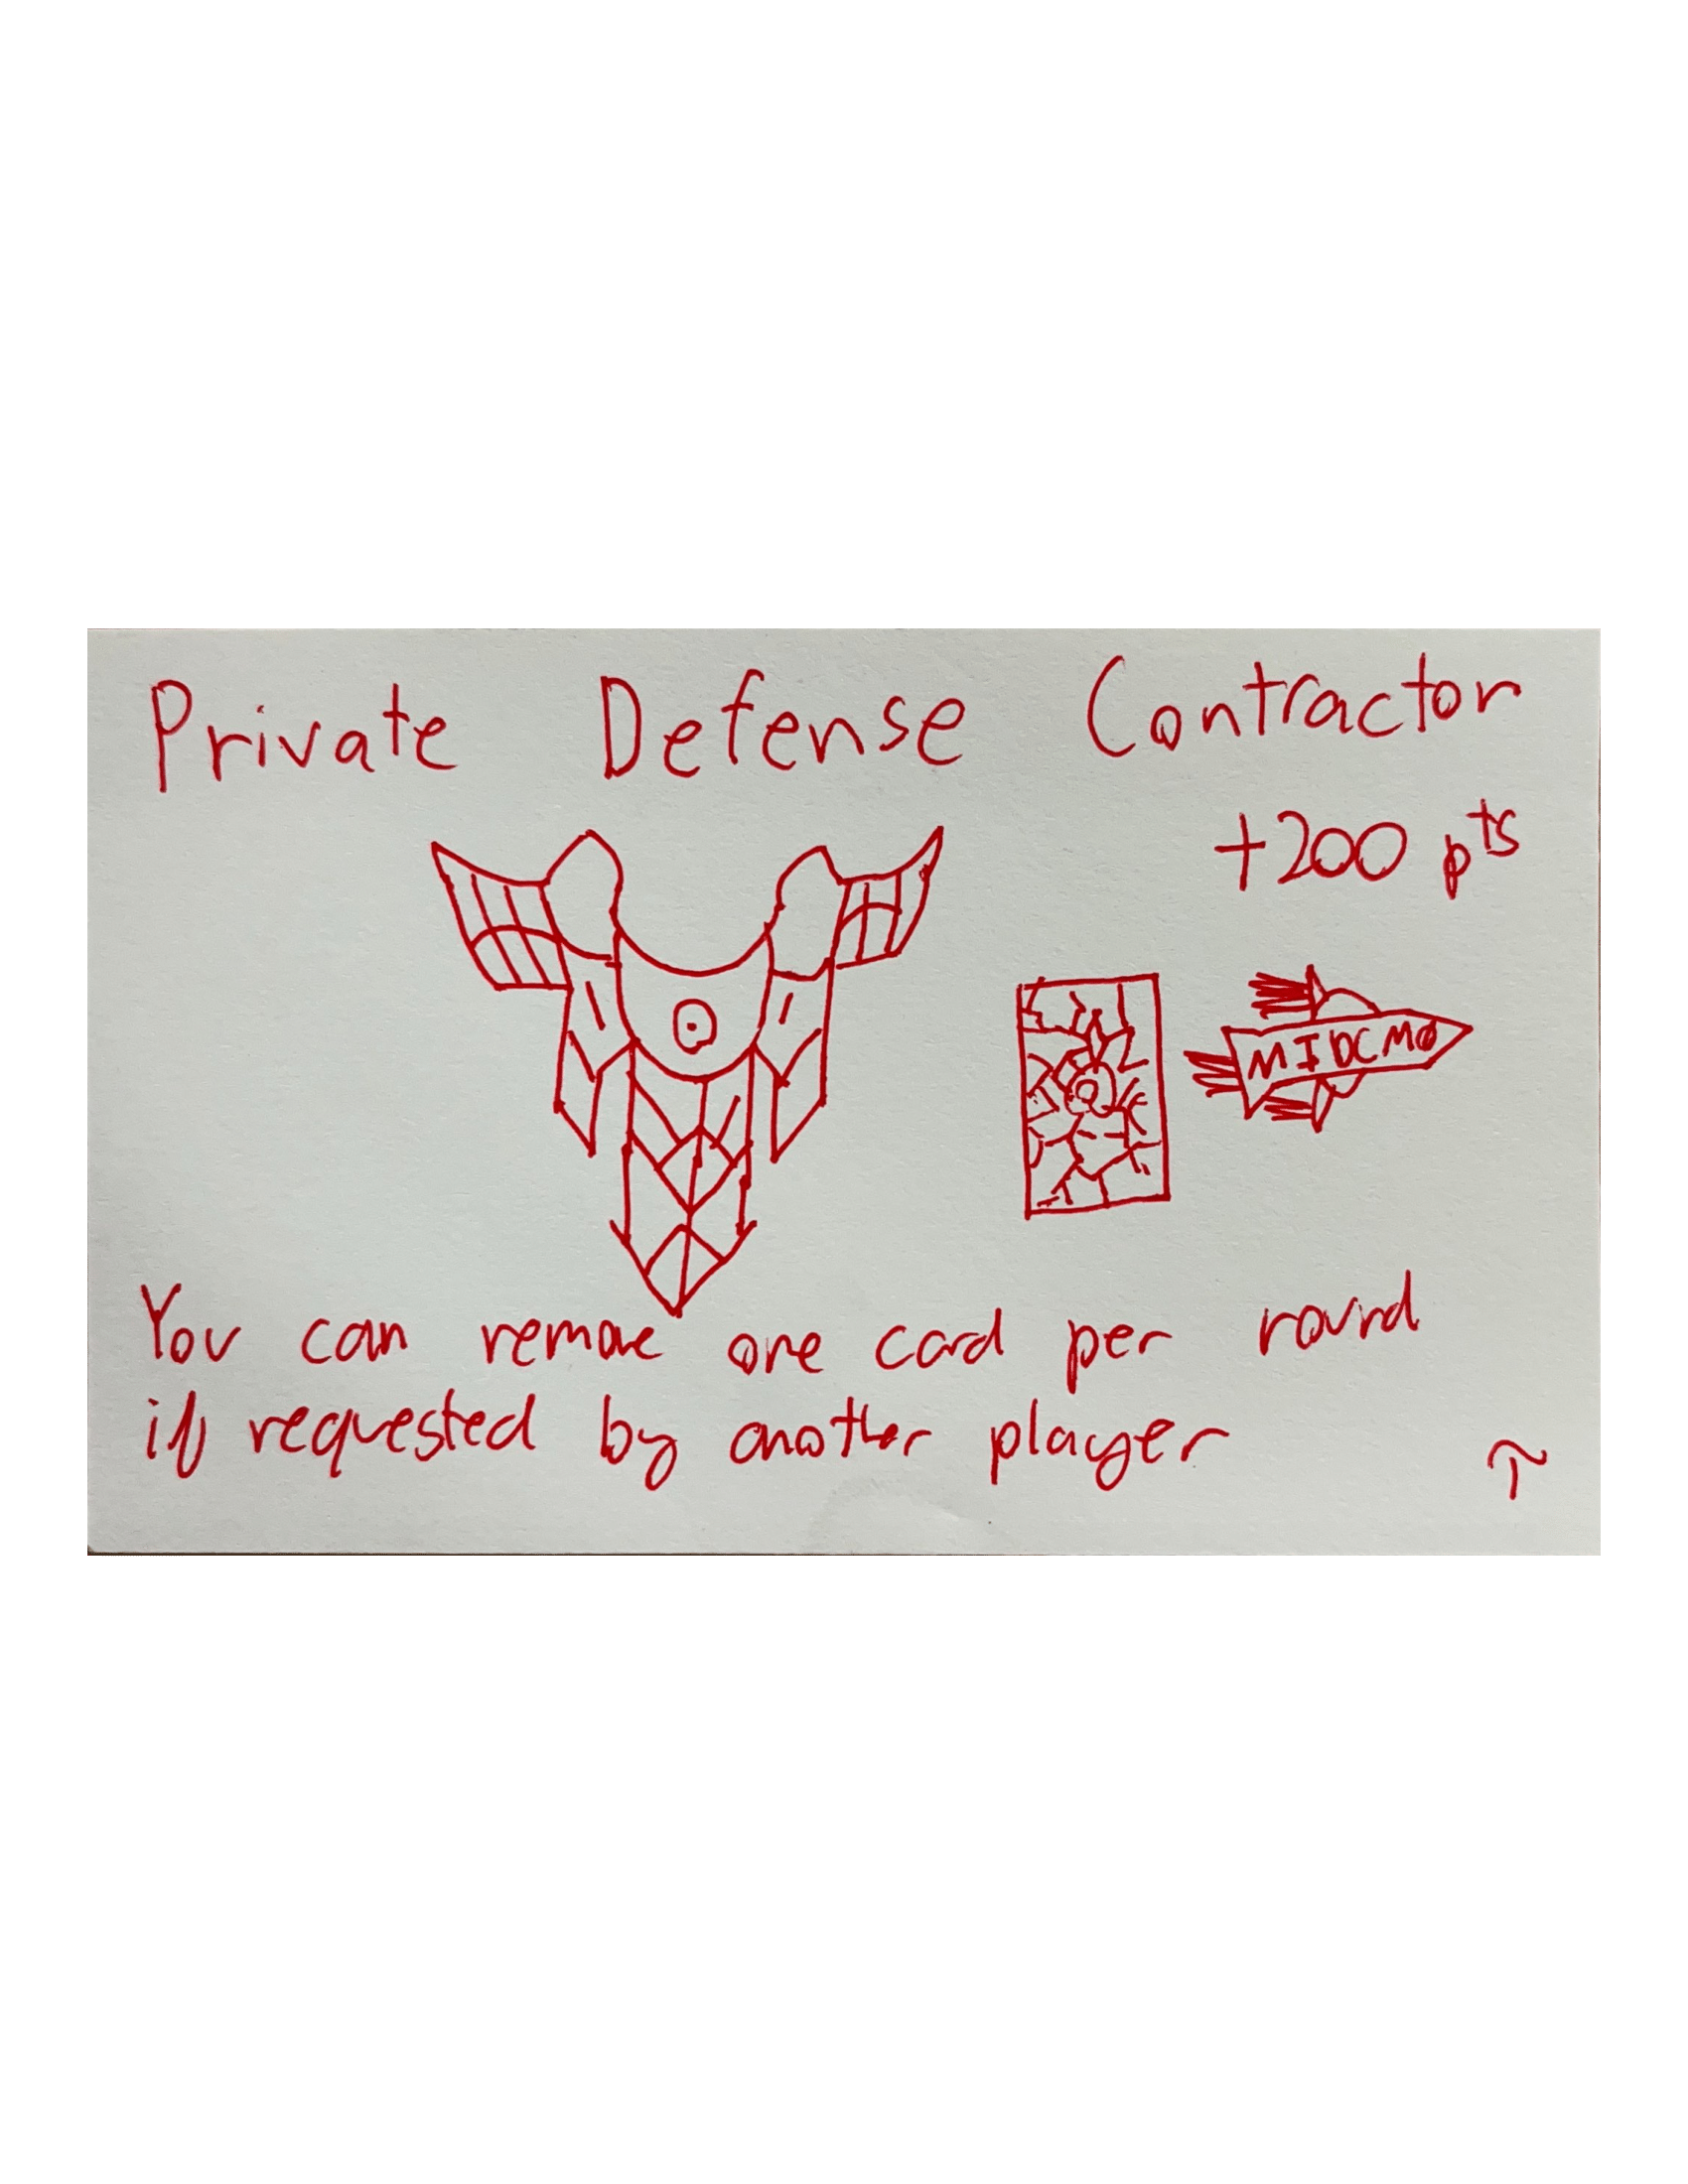 Private Defense Contractor
+200 pts
MIDCMO
You can remove one card per round
if requested by another player